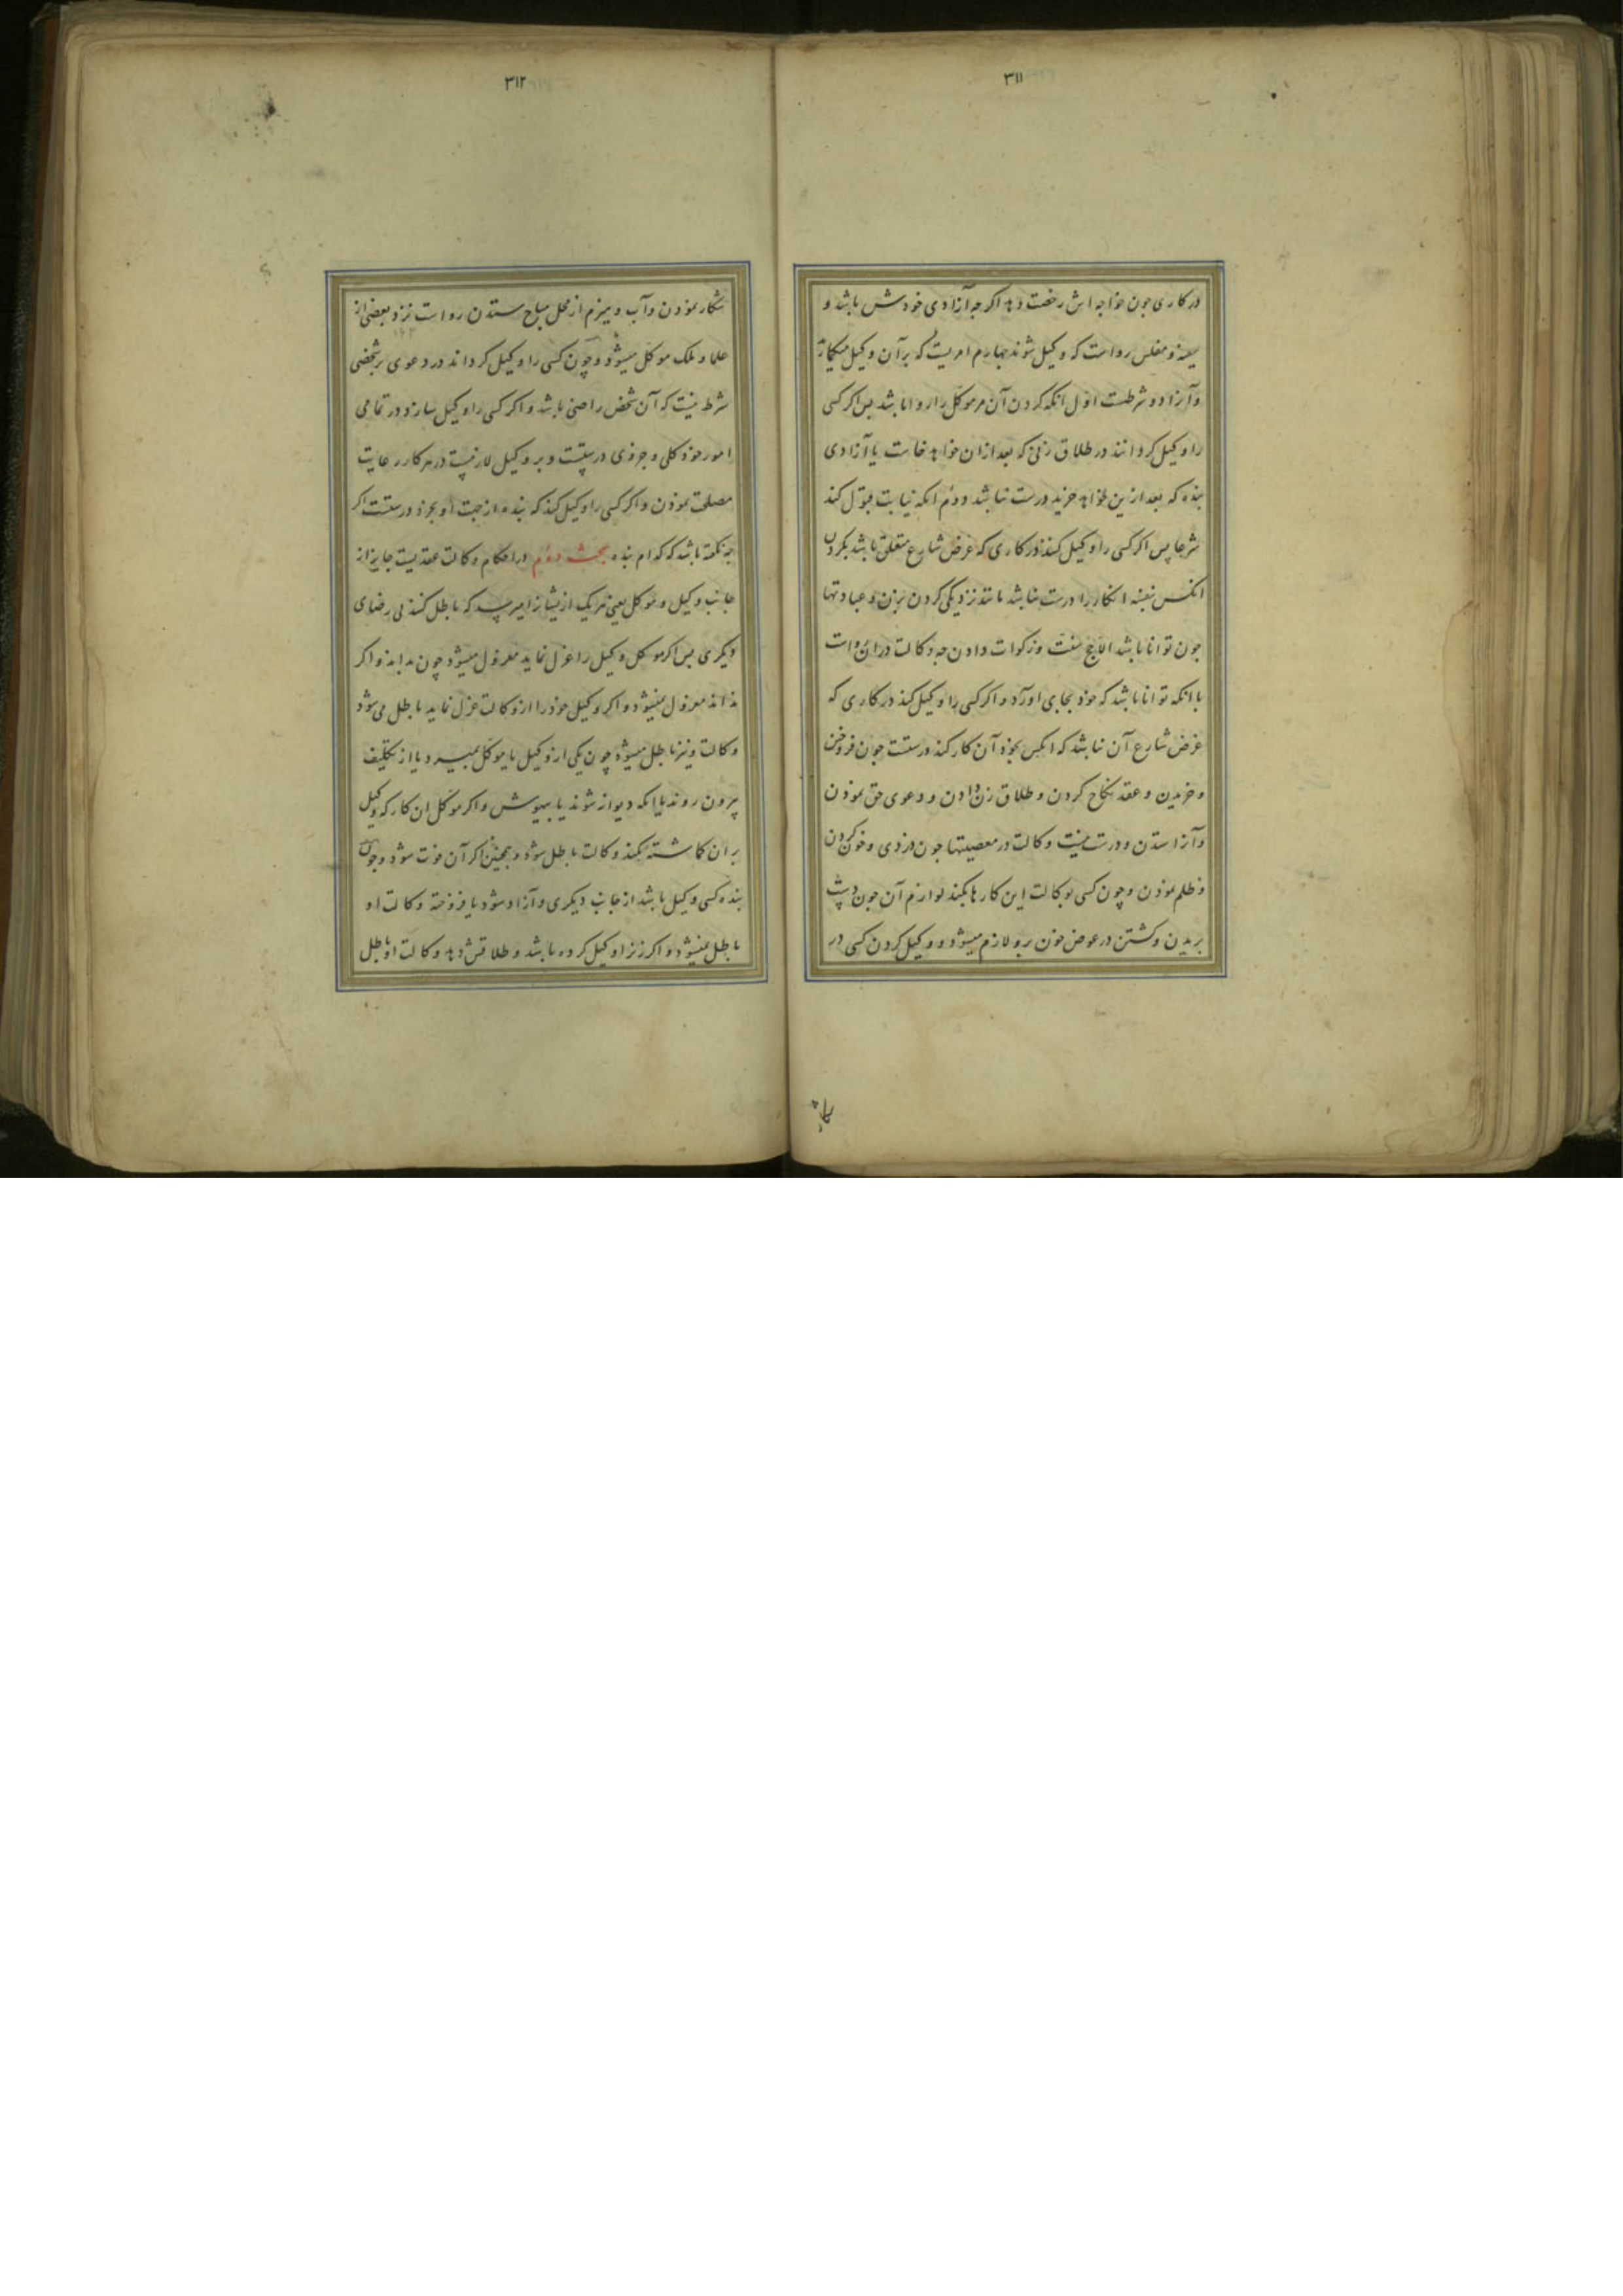 ۳۱۱
در کاری جون خواجه اش رخصت دهد اکر جه آزادی خودش باشد و
سفیه و مفلس رواست که وکیل شوند جهارم امریست که برآن وکیل میکمارند
وآنرا دو شرطست اول انکه کردن آن مرموکل را روا باشد بس اکر کسی
را وکیل کردانند در طلاق زنی که بعد ازان خواهد خاست یا آزادی
بنده که بعد ازین خواهد خرید درست نباشد ودوم انکه نیابت قبول کند
شرعا پس اکر کسی را وکیل کنند در کاری که غرض شارع متعلق باشد بکردن
انکس بنفسه انکار را درست نباشد مانند نزدیکی کردن بزن و عبادتها
جون توانا باشد الا حج سنت و زکوات دادن جه وکالت دران رواست
با انکه توانا باشد که خود بجای اورد و اکر کسی را وکیل کند در کاری که
غرض شارع آن نباشد که انکس بخود آن کار کند درستست جون فروختن
و خریدن و عقد نکاح کردن و طلاق زن دادن و دعوی حق نموذن
وآنرا ستدن و درست نیست وکالت در معصیتها جون دزدی و خون کردن
و ظلم نموذن وچون کسی بوکالت این کارها بکند لوازم آن جون دست
بریدن وکشتن در عوض خون برو لازم میشود و وکیل کردن کسی در
شکار
۳۱۲
شکار نموذن وآب وهیزم از محل مباح ستدن رواست نزد بعضی از
علما و ملک موکل میشود وچون کسی را وکیل کرداند در دعوی بر شخصی
شرط نیست که آن شخص راضی باشد و اکر کسی را وکیل سازد در تمامی
امور خود کلی و جزوی درستست و بر وکیل لازمست در هر کار رعایت
مصلحت نموذن واکر کسی را وکیل کند که بنده از جهت او بخرد درستست اکر
جه نکفته باشد که کدام بنده بحث دوم در احکام وکالت عقدیست جایز از
جانب وکیل و موکل یعنی هر یک ازیشانرا میرسد که باطل کنند بی رضای
دیکری بس اکر موکل وکیل را عزل نماید معزول میشود چون بداند و اکر
نداند معزول نمیشود و اکر وکیل خود را از وکالت عزل نماید باطل می شود
وکالت ونیز باطل میشود چون یکی از وکیل یا موکل بمیرد یا از تکلیف
بیرون روند یا انکه دیوانه شوند یا بیهوش و اکر موکل ان کار که وکیل
بران کماشته بکند وکالت باطل شود و همچنین اکر آن فوت شود وچون
بنده کسی وکیل باشد از جانب دیکری و آزاد شود یا فروخته وکالت او
باطل نمیشود و اکر زنرا وکیل کرده باشد و طلاقش دهد وکالت او باطل